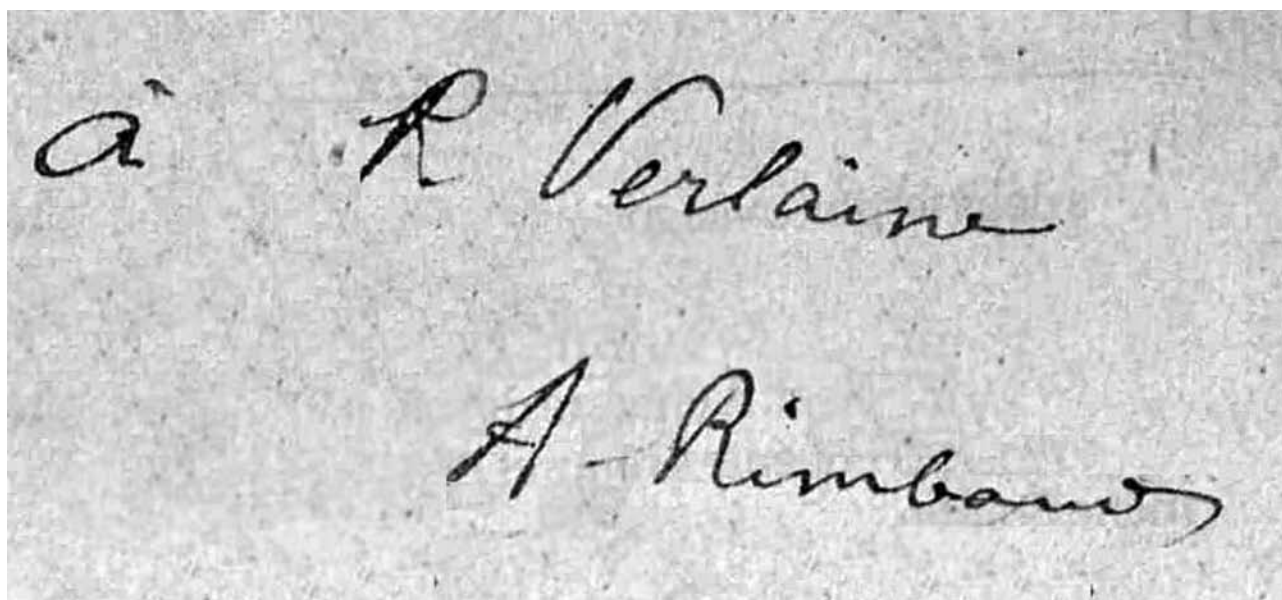 à R Verlaine
A - Rimbaud